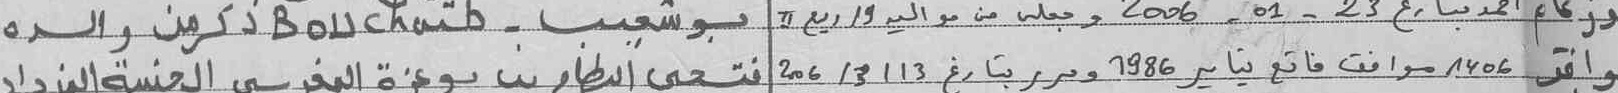 احمد بتاريخ 23 - 01 - 2006 وجعله من مواليد 19 ربيع II بوشعيب - Bouchaib ذكر من والده
وافق 1406 موافق فاتح يناير 1986 وحرر بتاريخ 13 / 3 / 206 فتحي بن بوعزة المغربي الجنسية المزداد